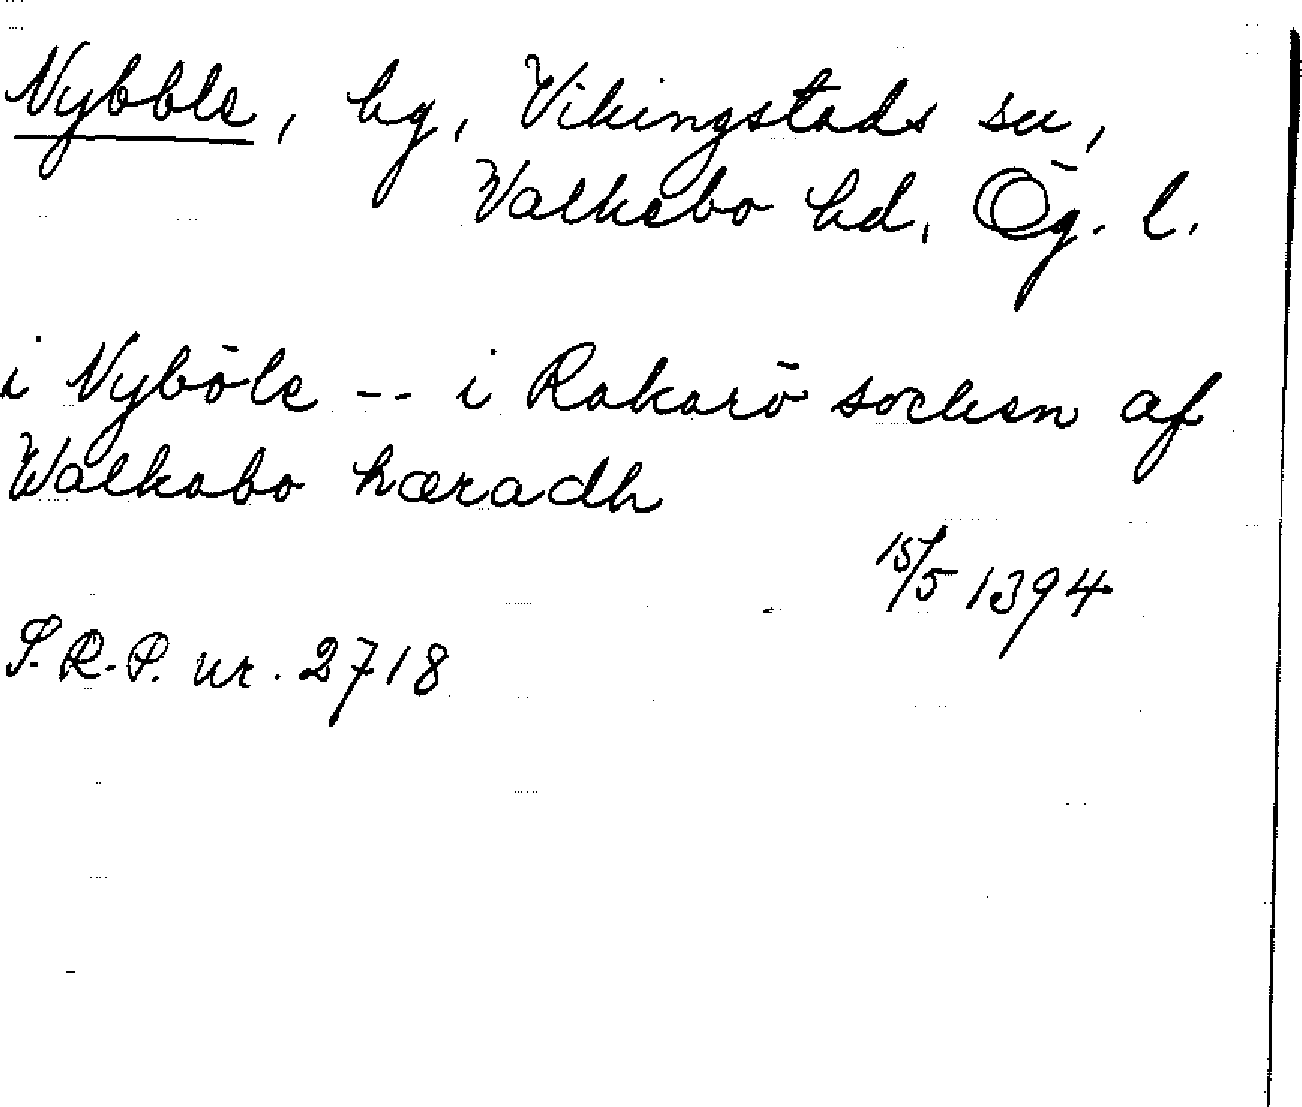 Nybble, by, Vikingstads sn,
Valkebo hd, Ög. l.
i Nyböle -- i Rakarö sochen af
Walkabo hæradh
15/5 1394
S. R. P. nr. 2718